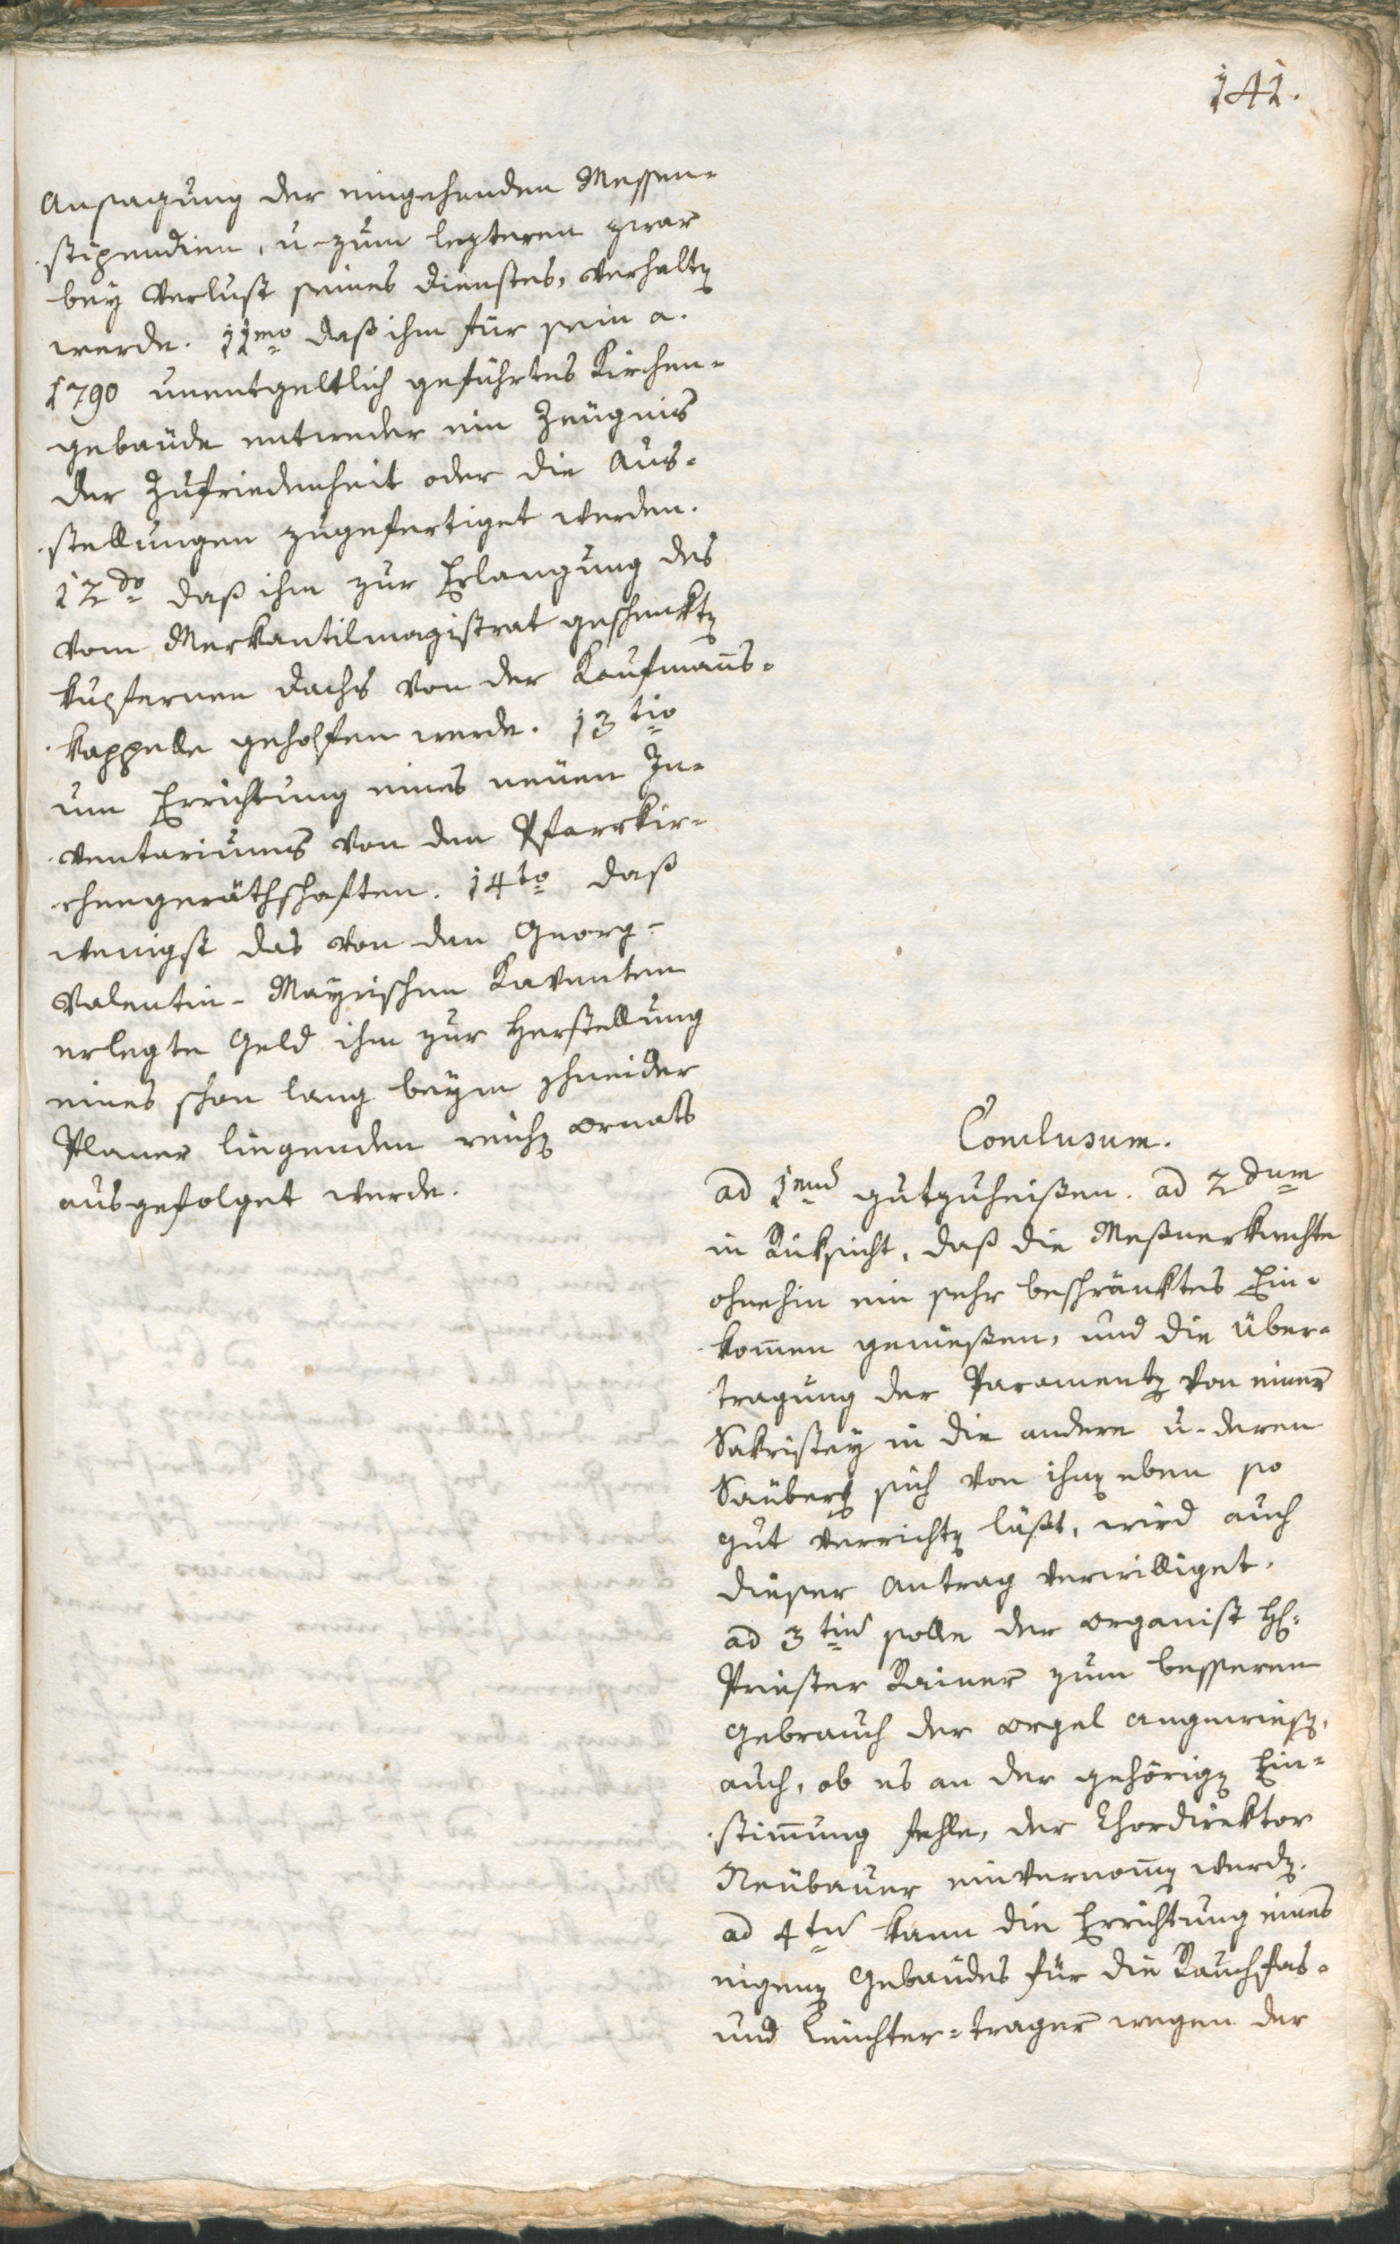 141.
Ansagung der eingehenden Messen-
stipendien, u. zum lezteren zwar
bey Verlust seines Dienstes, verhalten
werde. 11mo daß ihm für sein a.
1790 unentgeltlich geführtes Kirchen-
gebäude entweder ein Zeugnis
der Zufriedenheit oder die Aus-
stellungen zugefertiget werden.
12do daß ihm zur Erlangung des
vom Merkantilmagistrat geschenkten
kupfernen Dachs von der Kaufmanns-
kappelle geholfen werde. 13tio
um Errichtung eines neuen In-
ventariums von den Pfarrkir-
chengeräthschaften. 14to daß
wenigst das von den Georg-
Valentin-Mayrischen Kaventen
erlegte Geld ihm zur Herstellung
eines schon lang beym Schneider
Planer liegenden reichen Ornats
ausgefolget werde.
Conclusum.
ad 1mum gutzuheißen. ad 2dum
in Rüksicht, daß die Meßnerknechte
ohnehin ein sehr beschränktes Ein-
kommen genießen, und die Über-
tragung der Paramenten von einer
Sakristey in die andere u. deren
Säuberg sich von ihnen eben so
gut verrichten läßt, wird auch
dieser Antrag verwilliget.
ad 3tium solle der Organist H:
Priester Rainer zum besseren
Gebrauch der Orgel angewiesen,
auch, ob es an der gehörigen Ein-
stimmung fehle, der Chordirektor
Neubauer einvernommen werden.
ad 4tum kann die Errichtung eines
eigenen Gebäudes für die Rauchfas-
und Leuchter-trager wegen der